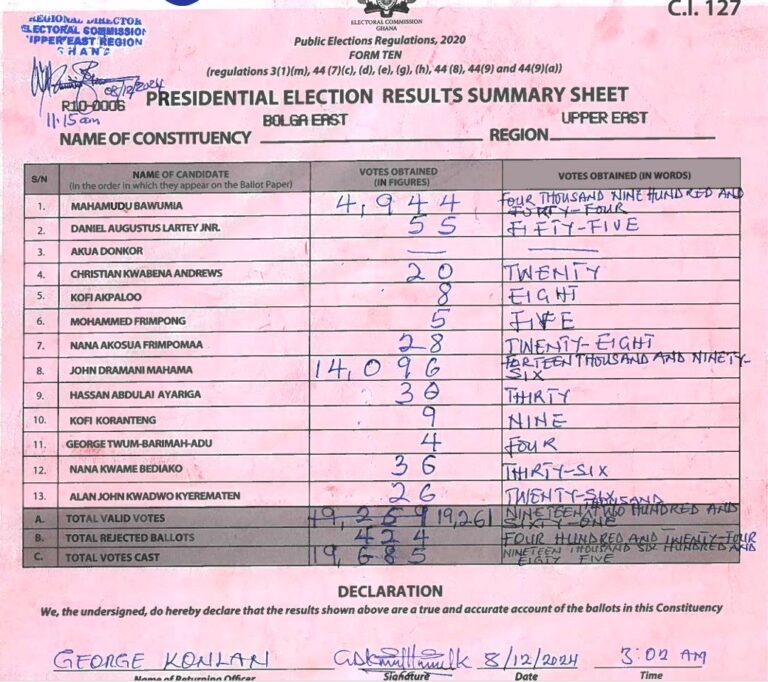 C.I. 127
REGIONAL DIRECTOR
ELECTORAL COMMISSION
UPPER EAST REGION
GHANA
08/12/2024
11:15am
ELECTORAL COMMISSION
GHANA
Public Elections Regulations, 2020
FORM TEN
(regulations 3(1)(m), 44 (7)(c), (d), (e), (g), (h), 44 (8), 44(9) and 44(9)(a))
R10-0006
PRESIDENTIAL ELECTION RESULTS SUMMARY SHEET
NAME OF CONSTITUENCY BOLGA EAST REGION UPPER EAST
S/N NAME OF CANDIDATE (In the order in which they appear on the Ballot Paper) VOTES OBTAINED (IN FIGURES) VOTES OBTAINED (IN WORDS)
1. MAHAMUDU BAWUMIA 4,944 FOUR THOUSAND NINE HUNDRED AND FORTY-FOUR
2. DANIEL AUGUSTUS LARTEY JNR. 55 FIFTY-FIVE
3. AKUA DONKOR — —
4. CHRISTIAN KWABENA ANDREWS 20 TWENTY
5. KOFI AKPALOO 8 EIGHT
6. MOHAMMED FRIMPONG 5 FIVE
7. NANA AKOSUA FRIMPOMAA 28 TWENTY-EIGHT
8. JOHN DRAMANI MAHAMA 14,096 FORTEEN THOUSAND AND NINETY-SIX
9. HASSAN ABDULAI AYARIGA 30 THIRTY
10. KOFI KORANTENG 9 NINE
11. GEORGE TWUM-BARIMAH-ADU 4 FOUR
12. NANA KWAME BEDIAKO 36 THIRTY-SIX
13. ALAN JOHN KWADWO KYEREMATEN 26 TWENTY-SIX
A. TOTAL VALID VOTES 19,259 19,261 NINETEEN THOUSAND TWO HUNDRED AND SIXTY-ONE
B. TOTAL REJECTED BALLOTS 424 FOUR HUNDRED AND TWENTY-FOUR
C. TOTAL VOTES CAST 19,685 NINETEEN THOUSAND SIX HUNDRED AND EIGTY FIVE
DECLARATION
We, the undersigned, do hereby declare that the results shown above are a true and accurate account of the ballots in this Constituency
GEORGE KONLAN 8/12/2024 3:02 AM
Name of Returning Officer Signature Date Time